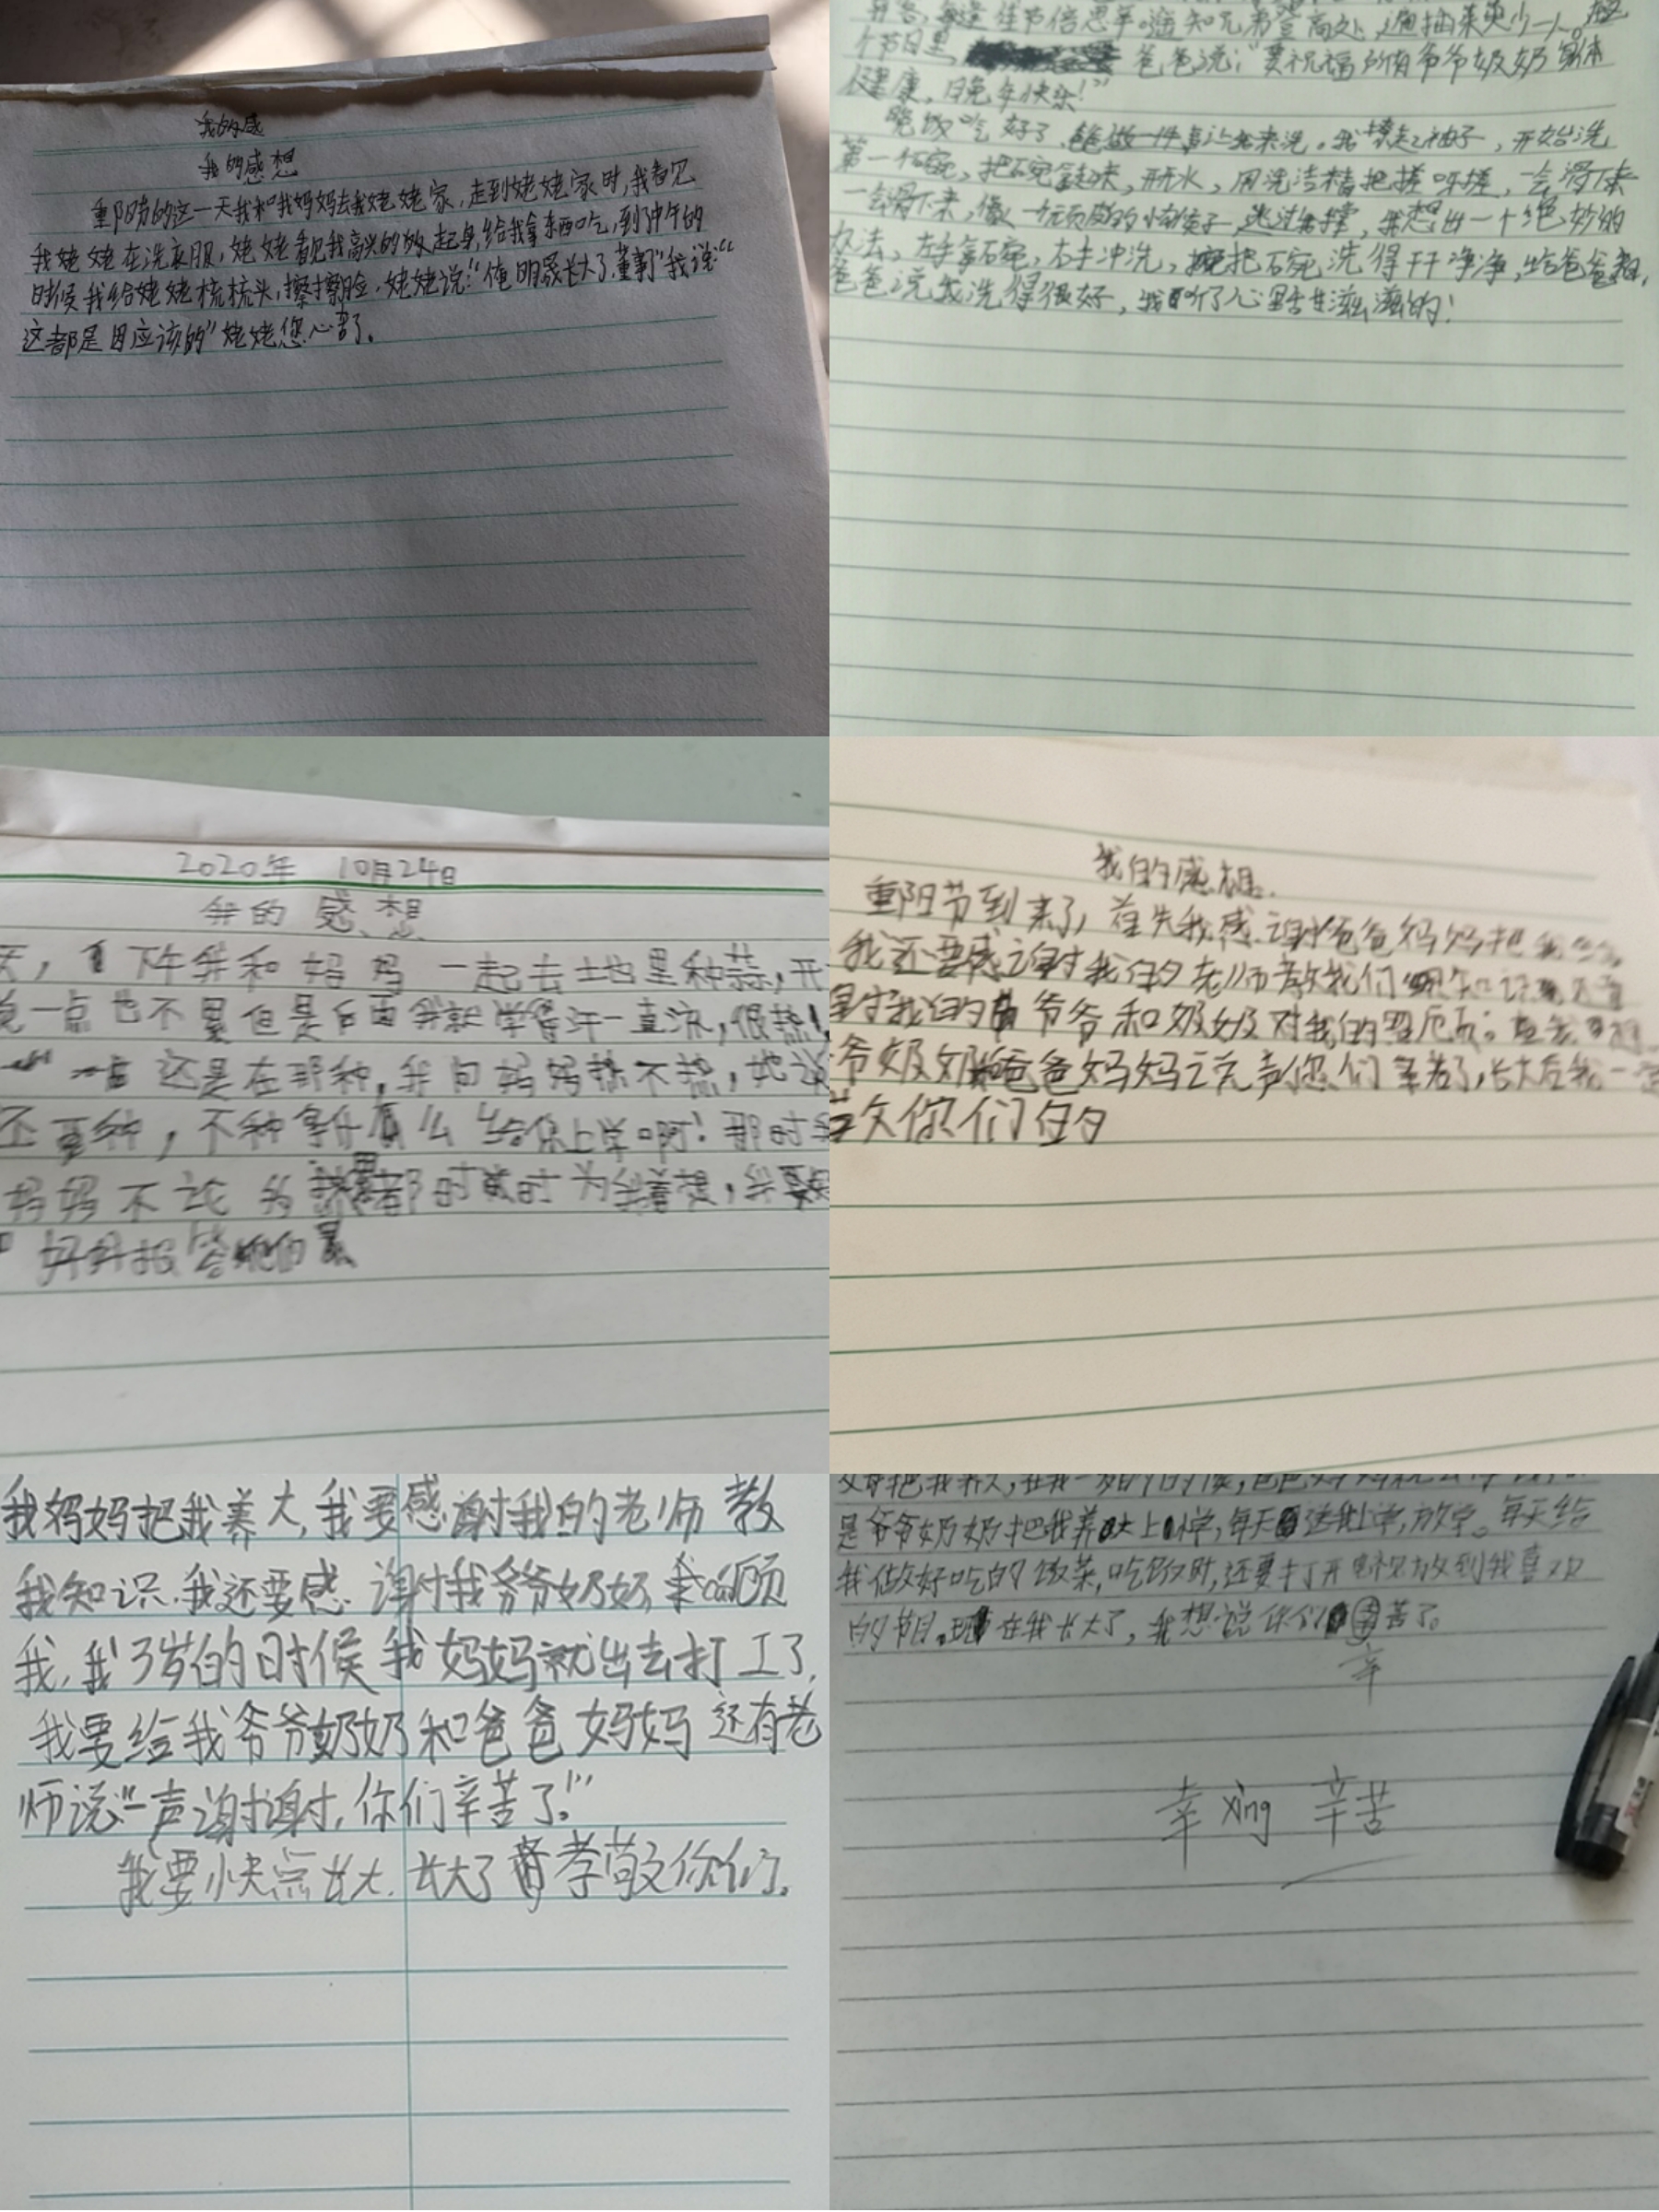 我的感
我的感想
重阳的这一天我和我妈妈去我姥姥家,走到姥姥家时,我看见
我姥姥在洗衣服,姥姥看见我高兴的放起身,给我拿东西吃,到中午的
时候我给姥姥梳梳头,擦擦脸,姥姥说:"俺明晟长大了,董事了"我说:"
这都是因应该的"姥姥您心苦了。
每逢佳节倍思羊。遥知兄弟登高处,遍插茱萸少一人。
个节日里 爸爸说:"要祝福所有爷爷奶奶身体
健康,晚年快乐!"
晚饭吃好了,爸爸 让我来洗。我 起袖子,开始洗
第一个碗,把碗拿起来,开开水,用洗洁精把搓呀搓,一会滑下来
一会滑下来,像一 顽皮的小孩子, 我想出一个绝妙的
办法,左手拿石宛,右手冲洗, 把石宛洗得干干净净,给爸爸
爸爸说我洗得很好,我听了心里甘滋滋的!
2020年 10月24日
我的感想
天, 下午我和妈妈一起去土地里种蒜,开
一点也不累但是后面我就 汗一直流,很热!
还是在那种,我问妈妈热不热,她说
还要种,不种拿什么给你上学啊!那时我
妈妈不论 时时为我着想,我要
好好报答她们
我的感想.
重阳节到来了,首先我感谢爸爸妈妈把
我还要感谢我的老师教我们知识
谢我的爷爷和奶奶对我的照顾
爷奶奶和爸爸妈妈说声您们辛苦了,长大后我一定
敬你们的
我妈妈把我养大,我要感谢我的老师教
我知识.我还要感谢我爷爷奶奶, 顾
我,我3岁的时候我妈妈就出去打工了,
我要给我爷爷奶奶和爸爸妈妈还有老
师说"一声谢谢,你们辛苦了!"
我要快点长大,长大了 孝敬你们。
是爷爷奶奶把我养大上小学,每天送我上学,放学。每天给
我做好吃的饭菜,吃饭时,还要打开电视放到我喜欢
的节目。现在我长大了,我想说你们 苦了。
辛
幸 xing 辛苦